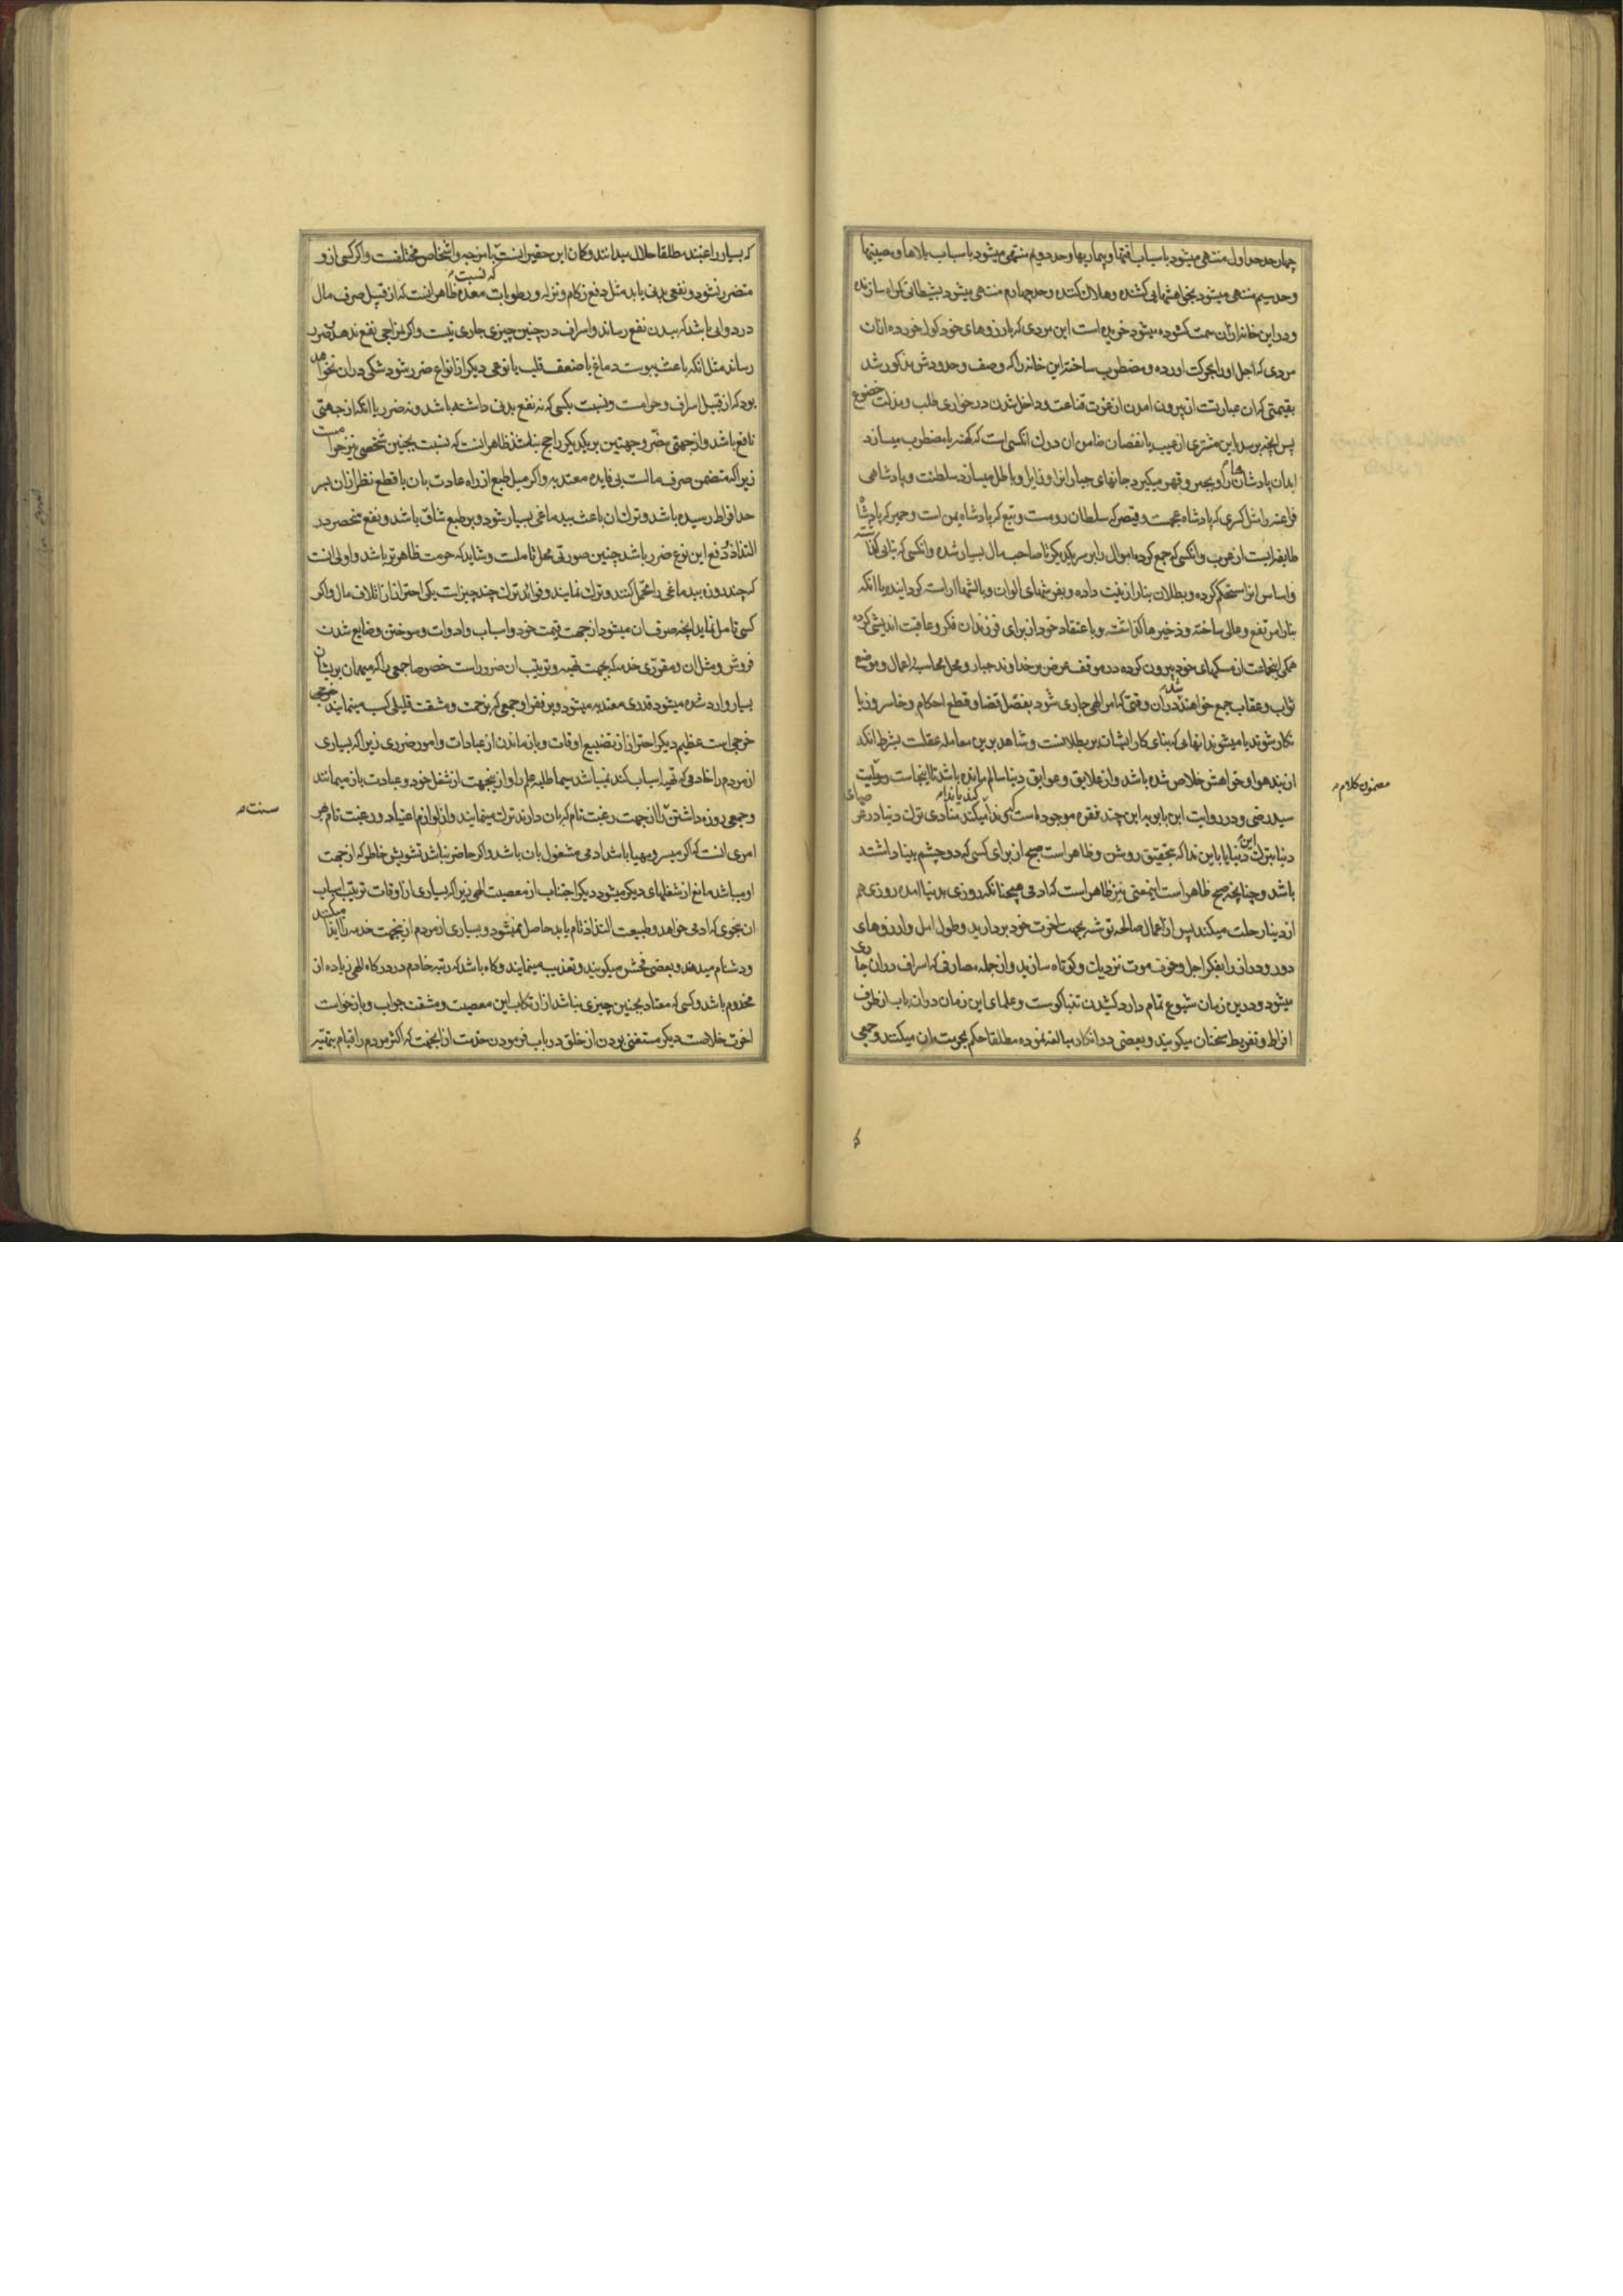 چهار حد حد اول منتهی میشود باسباب افتها و بیماریها و حد دویم منتهی میشود باسباب بلاها و مصیبتها
و حد سیم منتهی میشود بخواهشهایی کشنده و هلاک کننده و حد چهارم منتهی میشود بشیطانی گمراه سازنده
و در این خانه ازان سمت کشوده میشود خریده است این مردی که بارزوهای خود کول خورده از ان
مردی که اجل او را بحرکت اورده و مضطرب ساخته این خانه را که وصف و حدودش مذکور شد
بقیمتی که ان عبارتست از بیرون امدن از عزت قناعت و داخل شدن در خواری طلب و مذلت خضوع
پس انچه برسد باین مشتری از عیب یا نقصان ضامن ان درک انکسی است که کهنه یا مضطرب میسازد
ابدان پادشاهان را و بجبر و قهر میگیرد جانهای جباران را و زایل و باطل میسازد سلطنت و پادشاهی
فراعنه را مثل کسری که پادشاه عجمست و قیصر که سلطان رومست و تبع که پادشاه یمن است و حمیر که پادشاه
طایفه ایست از عرب و انکسی که جمع کرده اموال را بر سر یکدیکر تا صاحب مال بسیار شده و انکسی که بنایی گذاشته
و اساس انرا مستحکم کرده و بطلان بنا را زینت داده و بفرشهای الوان و بالشها اراسته کردانیده با انکه
بنا را مرتفع و عالی ساخته و ذخیرها گذاشته و باعتقاد خود از برای فرزندان فکر و عاقبت اندیشی کرده
همکی اینجماعت از مسکنهای خود بیرون کرده در موقف عرض بر خداوند جبار و محل محاسبه اعمال و موضع
ثواب و عقاب جمع خواهند شد در ان وقتی که امر الهی جاری شود بفصل قضا و قطع احکام و خاسر و زیا
نکار شوند یا میشوند انهایی که بنای کار ایشان بر بطلانست و شاهد بر این معامله عقلست بشرط انکه
از بند هوا و خواهش خلاص شده باشد و از علایق و عوایق دنیا سالم مانده باشد تا اینجاست روایت
مضمون کلام
سید رضی و در روایت ابن بابویه این چند فقره موجود است که ندا میکند منادی ترک دنیا در عر
صهای
دنیا بترک این دنیا یا باین ندا که بتحقیق روشن و ظاهر است صبح از برای کسی که دو چشم بینا داشته
باشد و چنانچه صبح ظاهر است اینمعنی نیز ظاهر است که ادمی همچنانکه روزی بدنیا امده روزی هم
از دنیا رحلت میکند پس از اعمال صالحه توشه بجهت اخرت خود بردارید و طول امل و ارزوهای
دور و دراز را بفکر اجل و خوف موت نزدیک و کوتاه سازید و از جمله مصارفی که اسراف در ان جاری
میشود و در این زمان شیوع تمام دارد کشیدن تنباکوست و علمای این زمان در ان باب از طرف
افراط و تفریط سخنان میکویند و بعضی در انکار مبالغه نموده مطلقا حکم بحرمت ان میکنند و جمعی
که بسیار راغبند مطلقا حلال میدانند و کمان این حقیر انست که نسبت باین وجه و اشخاص مختلفست و اکر کسی از و
متضرر نشود و نفعی بدنی یابد مثل دفع زکام و نزله و رطوبات معده ظاهر انست که از قبیل صرف مال
در دوایی باشد که ببدن نفع رساند و اسراف در چنین چیزی جاری نیست و اکر بمزاجی نفع ندهد و ضرر
رساند مثل انکه باعث یبوست دماغ یا ضعف قلب یا نوعی دیکر از انواع ضرر شود شکی در ان نخواهد
بود که از قبیل اسراف و حرامست و نسبت بکسی که نه نفع بدنی داشته باشد و نه ضرر یا انکه از جهتی
نافع باشد و از جهتی مضر و جهتین بر یکدیکر راجح نباشد ظاهر انست که نسبت بچنین شخصی نیز حرامست
زیرا که متضمن صرف مالست بی فایده معتد به و اکر میل طبع از راه عادت بان با قطع نظر از ان بسر
حد افراط رسیده باشد و ترک ان باعث بیدماغی بسیار شود و بر طبع شاق باشد و نفع منحصر در
التذاذ و دفع این نوع ضرر باشد چنین صورتی محل تاملست و شاید که حرمت ظاهرتر باشد و اولی انست
که چند روزه بیدماغی را تحمل کنند و ترک نمایند و فواید ترک چند چیز است یکی احتراز از اتلاف مال و اکر
کسی تامل نماید انچه صرف ان میشود از جهت قیمت خود و اسباب و ادوات و سوختن و ضایع شدن
فروش و مثل ان و مقرری خدمه که بجهت تهیه و ترتیب ان ضرور است خصوصا جمعی را که میهمان بریشان
بسیار وارد شده میشود قدری معتد به میشود و بر فقرا و جمعی که بزحمت و مشقت قلیلی کسب مینمایند خرجی
خرجی است عظیم دیکر احتراز از تضییع اوقات و بازماندن از عبادات و امور ضروری زیرا که بسیاری
از مردم را خادمی که تهیه اسباب کند نمیباشد سیما طلبه علم را و از اینجهت از شغل خود و عبادت باز میمانند
و جمعی روزه داشتن سنت را از جهت رغبت تام که بان دارند ترک مینمایند و از لوازم اعتیاد و رغبت تام هر
سنت
امری انست که اکر میسر و مهیا باشد ادمی مشغول بان باشد و اکر حاضر نباشد تشویش خاطر که از جهت
او میباشد مانع از شغلهای دیکر میشود دیکر اجتناب از معصیت الهی زیرا که بسیاری از اوقات ترتیب اسباب
ان بنحوی که ادمی خواهد و طبیعت التذاذ تام یابد حاصل نمیشود و بسیاری از مردم از اینجهت خدمه را ایذا میکنند
و دشنام میدهند و بعضی فحش میکویند و تعذیب مینمایند و کاه باشد که رتبه خادم در درکاه الهی زیاده از
مخدوم باشد و کسی که معتاد بچنین چیزی نباشد از ارتکاب این معصیت و مشقت جواب و بازخواست
اخرت خلاصست دیکر مستغنی بودن از خلق در باب فرمودن خدمت از انجهت که اکثر مردم را قیام بتهیه